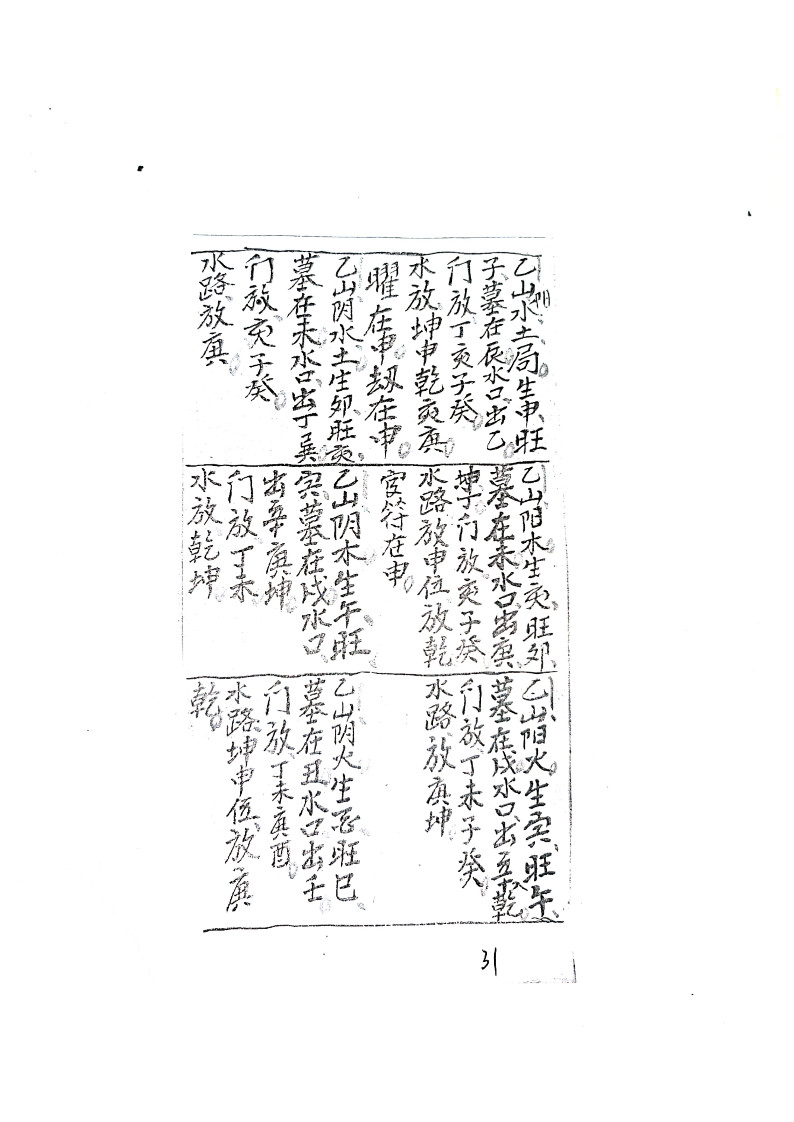 乙山阳水土局生申旺
子墓在辰水口出乙
门放丁亥子癸
水放坤申乾亥庚
曜在申劫在申
乙山阴水土生卯旺亥
墓在未水口出丁巽
门放亥子癸
水路放庚
乙山阳木生亥旺卯
墓在未水口出庚
坤丁门放亥子癸
水路放申位放乾
符在申
乙山阴木生午旺
寅墓在戌水口
出辛庚坤
门放丁未
水放乾坤
乙山阳火生寅旺午
墓在戌水口出辛乾
门放丁未子癸
水路放庚坤
乙山阴火生酉旺巳
墓在丑水口出壬
门放丁未庚酉
水路坤申位放庚
乾
31